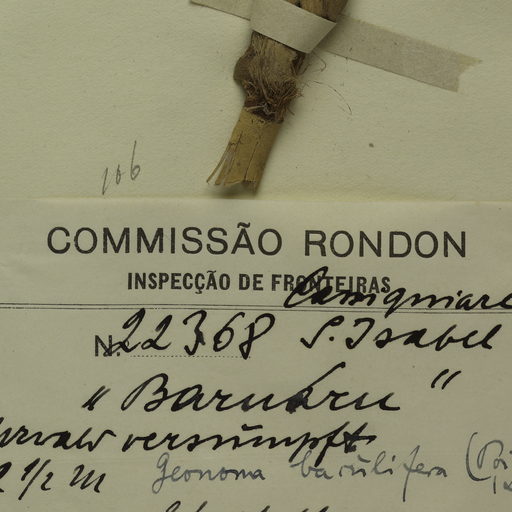 106
COMMISSÃO RONDON
INSPECÇÃO DE FRONTEIRAS
Casiquiare
N. 22368 S. Isabel
" "
versumpft
2 1/2 m Geonoma baculifera (Poi